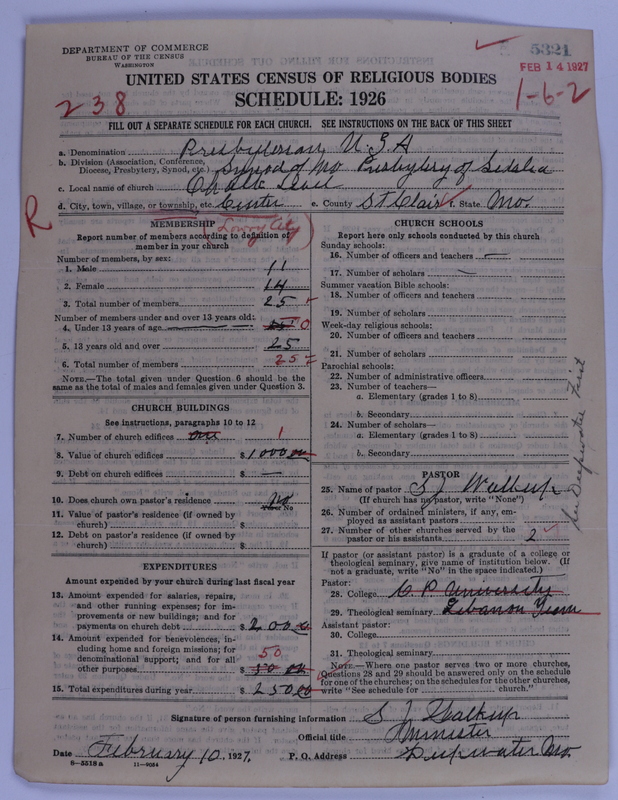 DEPARTMENT OF COMMERCE
BUREAU OF THE CENSUS
WASHINGTON
5321
FEB 14 1927
UNITED STATES CENSUS OF RELIGIOUS BODIES
SCHEDULE: 1926
238
1-6-2
FILL OUT A SEPARATE SCHEDULE FOR EACH CHURCH. SEE INSTRUCTIONS ON THE BACK OF THIS SHEET
a. Denomination Presbyterian U.S.A
b. Division (Association, Conference, Diocese, Presbytery, Synod, etc.) Synod of Mo Presbytery of Sedalia
c. Local name of church Chalk Level
d. City, town, village, or township, etc. Center e. County St Clair f. State Mo.
R
(Lowry City)
MEMBERSHIP
Report number of members according to definition of
member in your church
Number of members, by sex:
1. Male 11
2. Female 14
3. Total number of members 25
Number of members under and over 13 years old:
4. Under 13 years of age 0
5. 13 years old and over 25
6. Total number of members 25
NOTE.—The total given under Question 6 should be
the same as the total of males and females given under Question 3.
CHURCH BUILDINGS
See instructions, paragraphs 10 to 12
7. Number of church edifices one 1
8. Value of church edifices $ 1000 00
9. Debt on church edifices $ —
10. Does church own pastor's residence No
Yes or No
11. Value of pastor's residence (if owned by
church) $
12. Debt on pastor's residence (if owned by
church) $
EXPENDITURES
Amount expended by your church during last fiscal year
13. Amount expended for salaries, repairs,
and other running expenses; for im-
provements or new buildings; and for
payments on church debt $ 200 00
14. Amount expended for benevolences, in-
cluding home and foreign missions; for
denominational support; and for all
other purposes $ 50 00 50
15. Total expenditures during year $ 250 00
CHURCH SCHOOLS
Report here only schools conducted by this church
Sunday schools:
16. Number of officers and teachers —
17. Number of scholars —
Summer vacation Bible schools:
18. Number of officers and teachers
19. Number of scholars
Week-day religious schools:
20. Number of officers and teachers
21. Number of scholars
Parochial schools:
22. Number of administrative officers
23. Number of teachers—
a. Elementary (grades 1 to 8)
b. Secondary
24. Number of scholars—
a. Elementary (grades 1 to 8)
b. Secondary
See Deepwater First
PASTOR
25. Name of pastor S J Walkup
(If church has no pastor, write "None")
26. Number of ordained ministers, if any, em-
ployed as assistant pastors
27. Number of other churches served by the
pastor or his assistants 2
If pastor (or assistant pastor) is a graduate of a college or
theological seminary, give name of institution below. (If
not a graduate, write "No" in the space indicated.)
Pastor:
28. College C P University
29. Theological seminary Lebanon Tenn
Assistant pastor:
30. College
31. Theological seminary
NOTE.—Where one pastor serves two or more churches,
Questions 28 and 29 should be answered only on the schedule
for one of the churches; on the schedules for the other churches,
write "See schedule for church."
Signature of person furnishing information S J Walkup
Official title Minister
Date February 10, 1927. P. O. Address Deepwater Mo.
8-5518a 11-9054